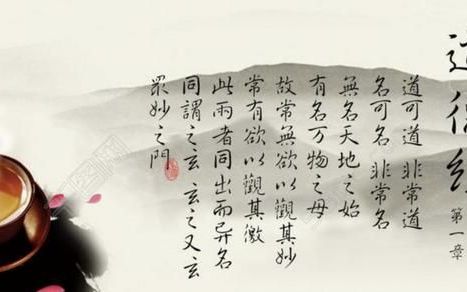 道德经
第一章
道可道 非常道
名可名 非常名
無名天地之始
有名万物之母
故常無欲以觀其妙
常有欲以觀其徼
此兩者同出而异名
同謂之玄 玄之又玄
眾妙之門